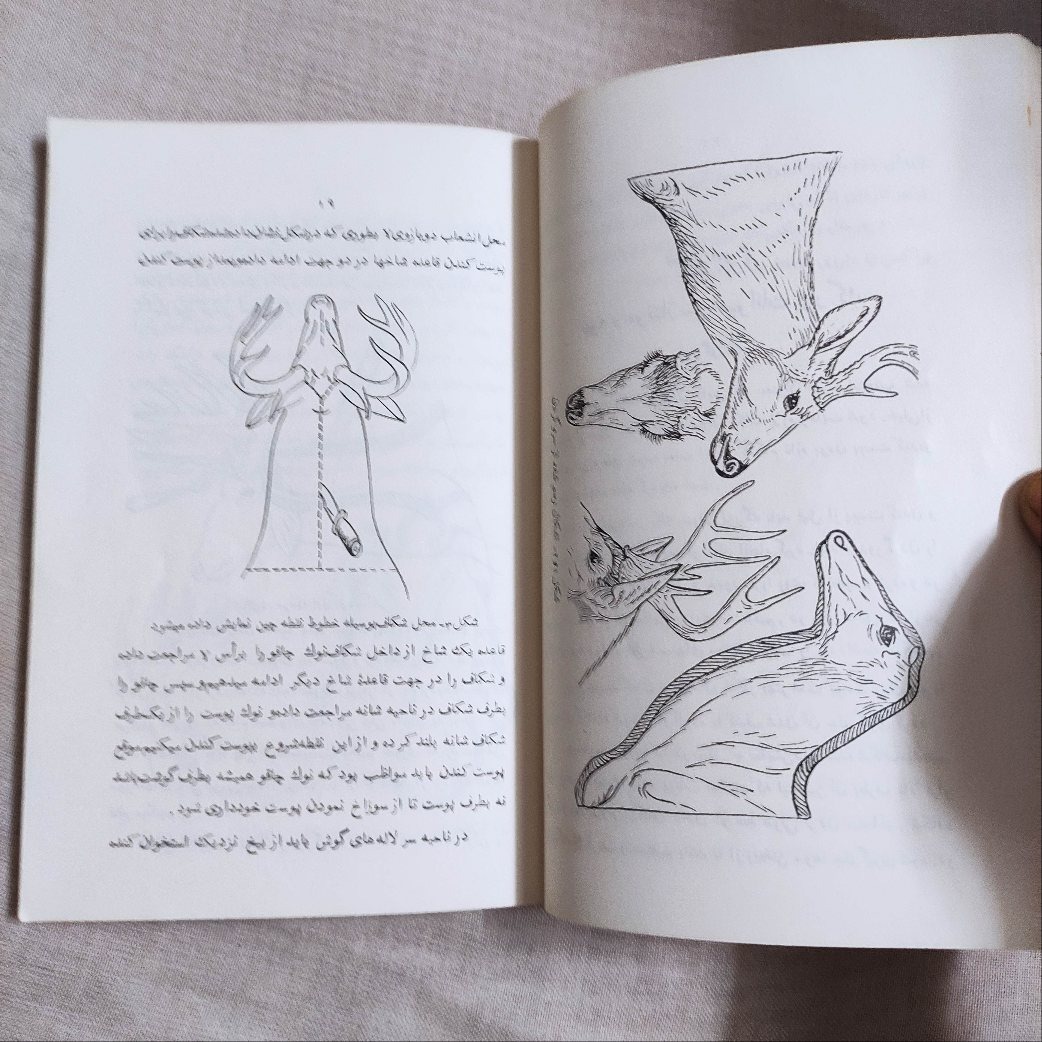 ۱۹
محل انشعاب دو بازوی ۷ بطوری که در شکل نشان داده شده شکاف را برای
پوست کندن قاعده شاخها در دو جهت ادامه داده و بعد از پوست کندن
شکل ۳- محل شکاف بوسیله خطوط نقطه چین نمایش داده میشود
قاعده یک شاخ از داخل شکاف نوک چاقو را برأس ۷ مراجعت داده
و شکاف را در جهت قاعدهٔ شاخ دیگر ادامه میدهیم و سپس چاقو را
بطرف شکاف در ناحیه شانه مراجعت داده و نوک پوست را از یکطرف
شکاف شانه بلند کرده و از این نقطه شروع بپوست کندن میکنیم موقع
پوست کندن باید مواظب بود که نوک چاقو همیشه بطرف گوشت باشد
نه بطرف پوست تا از سوراخ نمودن پوست خودداری شود.
در ناحیه سر لاله های گوش باید از بیخ نزدیک استخوان کنده